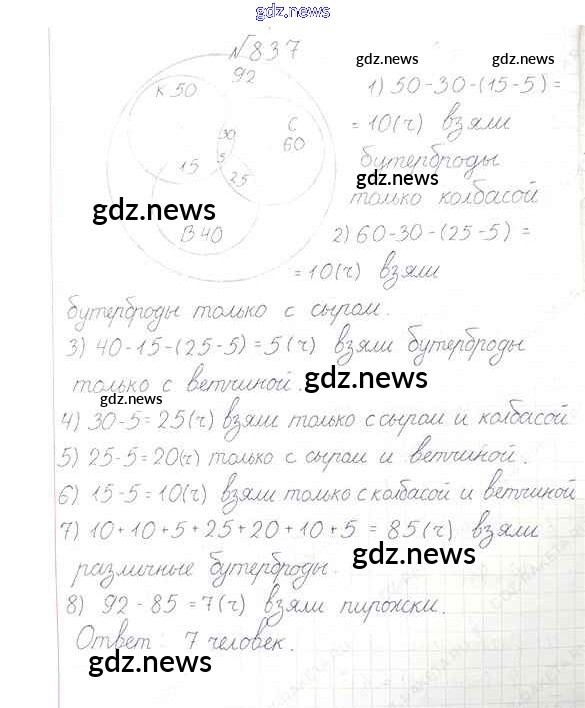 gdz.news
№837
gdz.news
gdz.news
92
К 50
1) 50-30-(15-5)=
С
60
30
= 10(ч) взяли
5
15
25
бутерброды
gdz.news
только колбасой
gdz.news
В 40
2) 60-30-(25-5)=
= 10(ч) взяли
бутерброды только с сыром.
3) 40-15-(25-5)=5(ч) взяли бутерброды
только с ветчиной.
gdz.news
gdz.news
4) 30-5=25(ч) взяли только с сыром и колбасой
5) 25-5=20(ч) только с сыром и ветчиной.
6) 15-5=10(ч) взяли только с колбасой и ветчиной
7) 10+10+5+25+20+10+5 = 85(ч) взяли
gdz.news
различные бутерброды.
8) 92-85=7(ч) взяли пирожки.
Ответ: 7 человек.
gdz.news